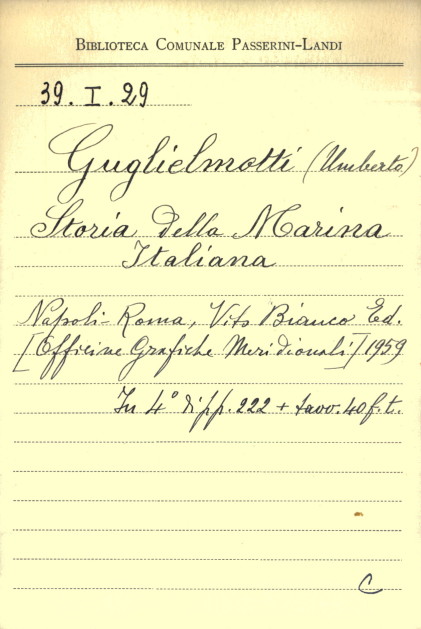 BIBLIOTECA COMUNALE PASSERINI-LANDI
39. I. 29
Guglielmotti (Umberto)
Storia della Marina
Italiana
Napoli-Roma, Vito Bianco Ed.
[Officine Grafiche Meridionali] 1959
In 4° di pp. 222 + tavv. 40 f. t.
C